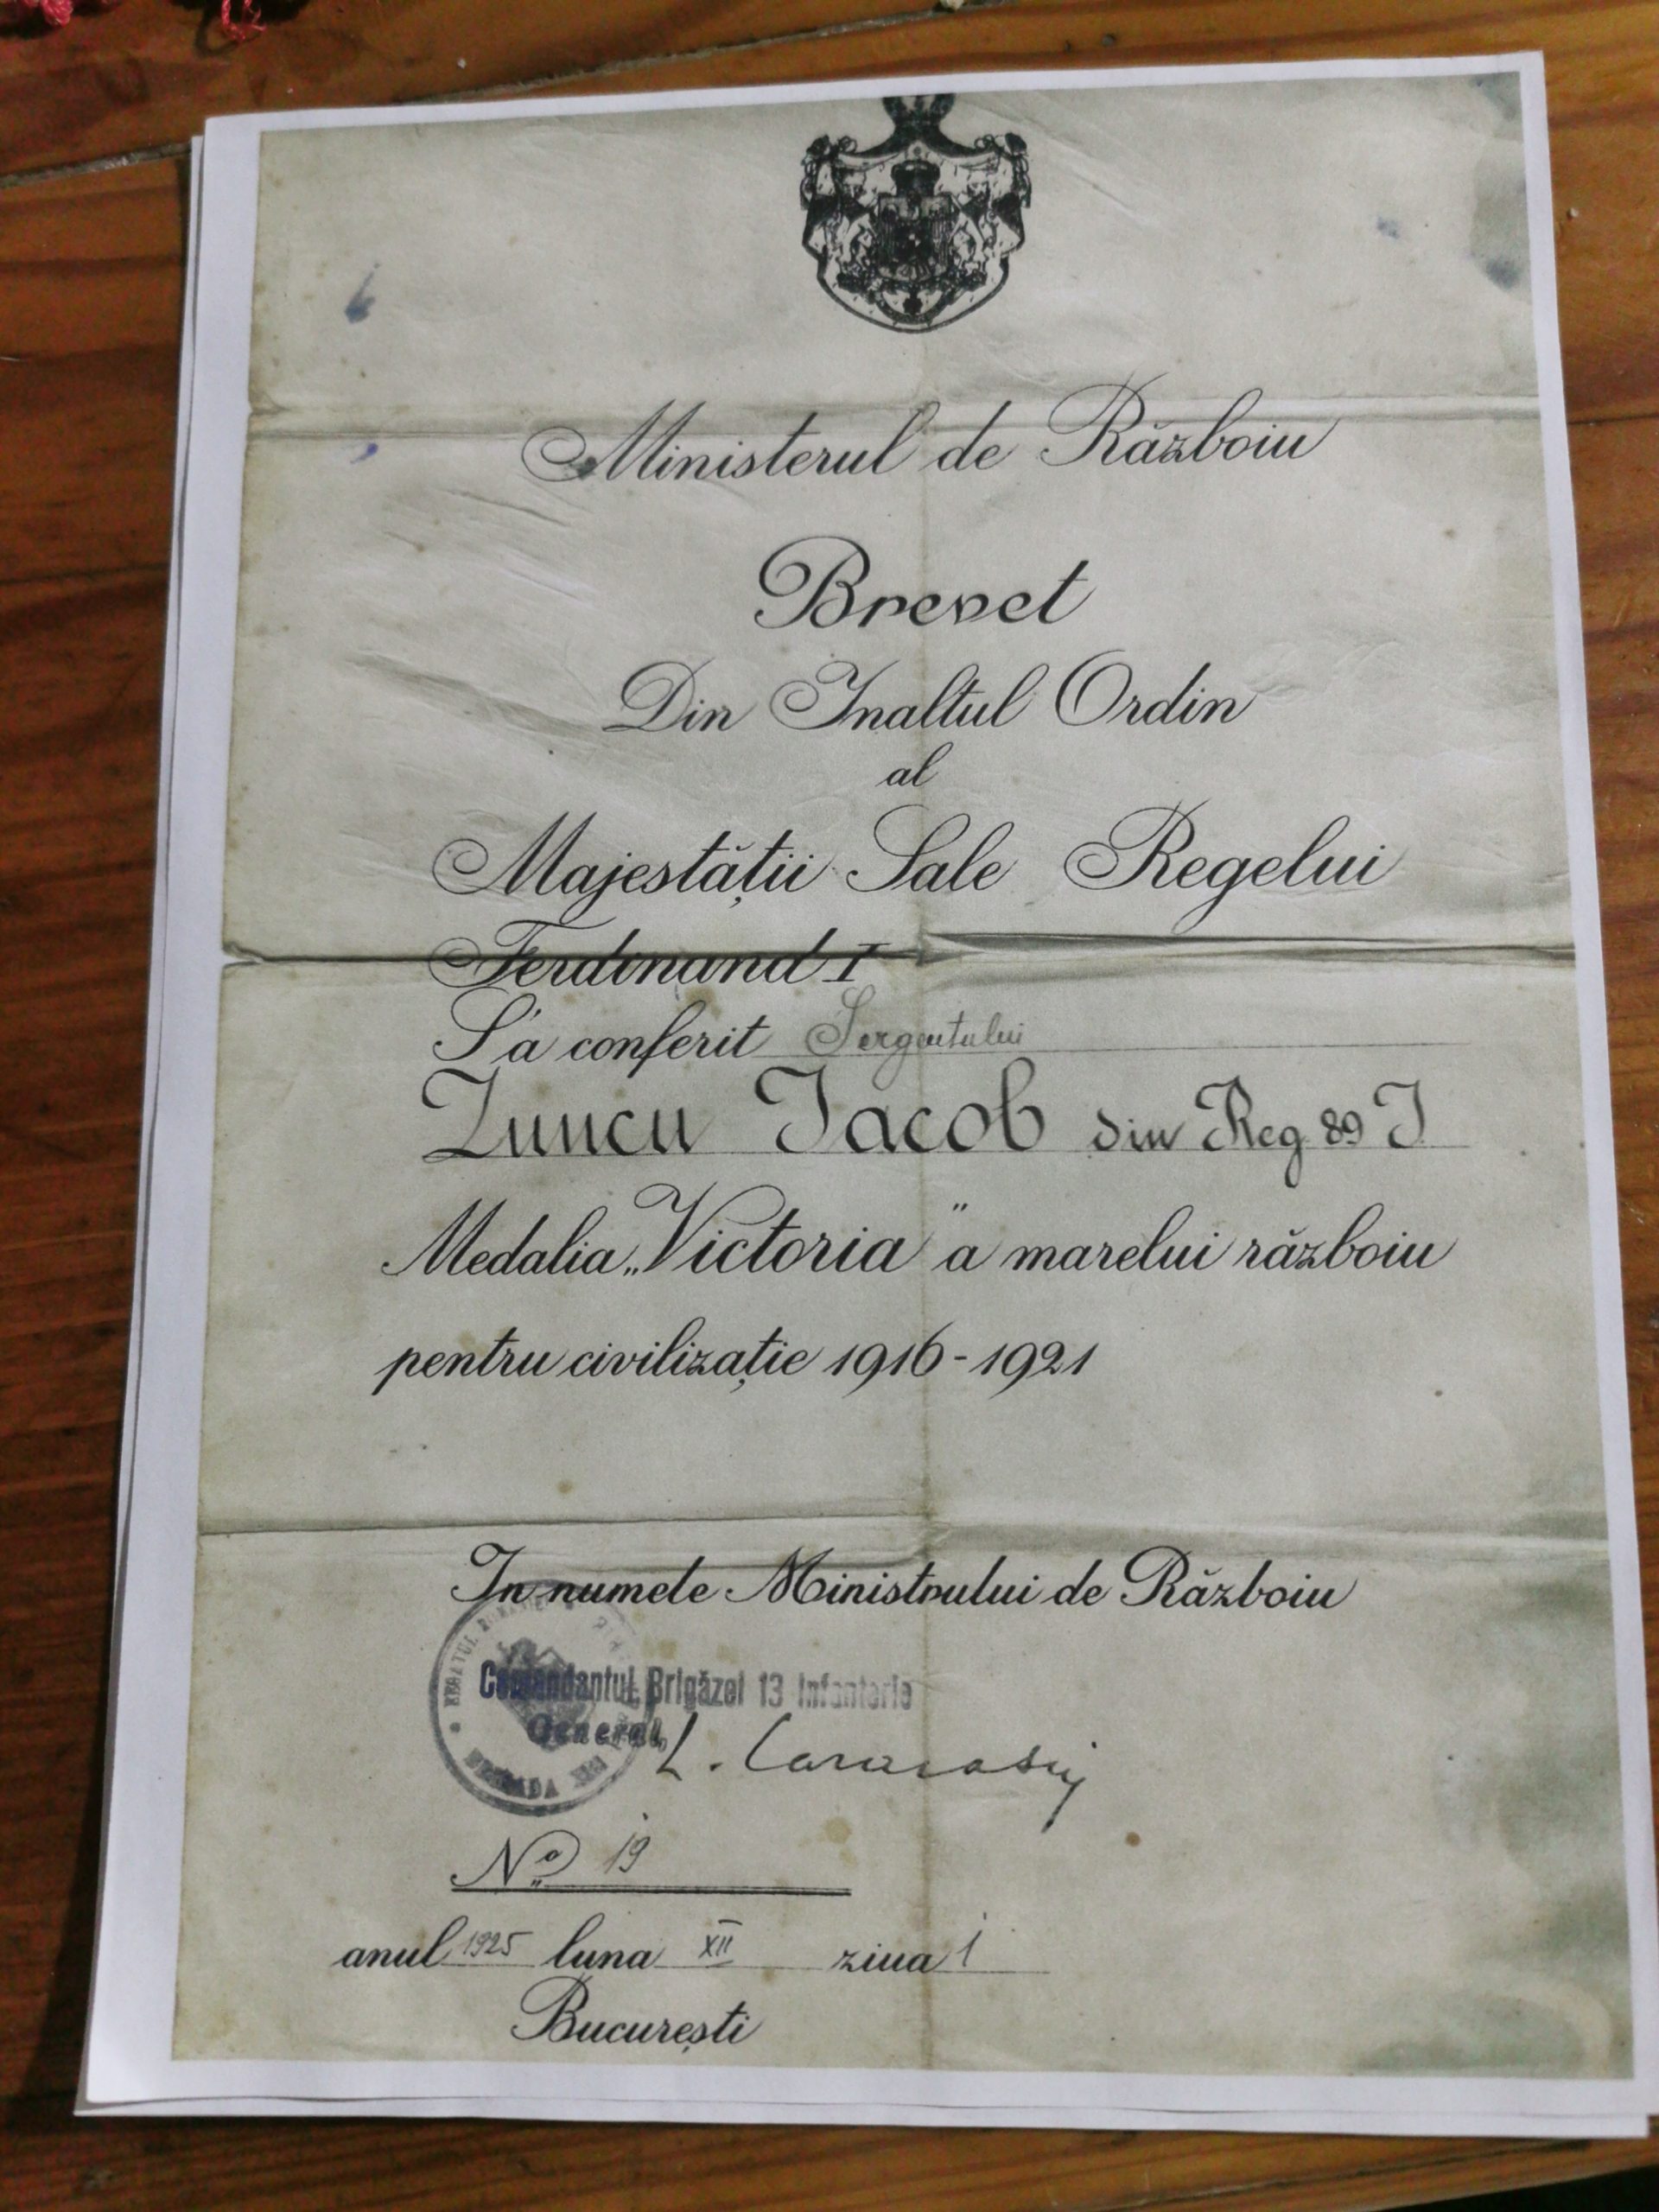 Ministerul de Războiu
Brevet
Din Inaltul Ordin
al
Majestăţii Sale Regelui
Ferdinand I
S'a conferit Sergentului
Zuncu Iacob din Reg 89 I
Medalia „Victoria" a marelui războiu
pentru civilizaţie 1916-1921
In numele Ministrului de Războiu
REGATUL ROMANIEI
Comandantul Brigăzei 13 Infanterie
General,
BRIGADA
No 19
anul 1925 luna XII ziua 1
Bucureşti